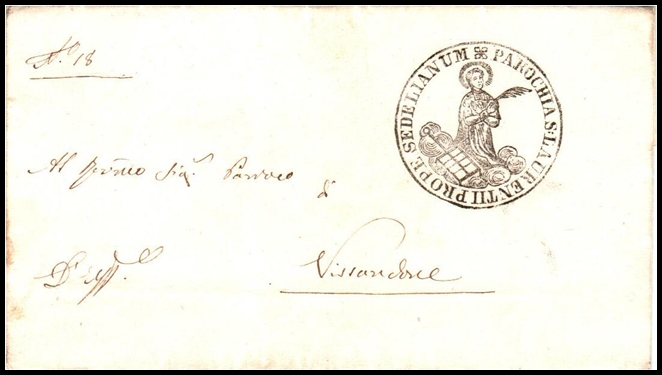 N.° 18
PAROCHIA S. LAURENTII PROPE SEDELIANUM
Al Rev.mo Sig.r Parroco
di
Vissandone
D'Uff.o